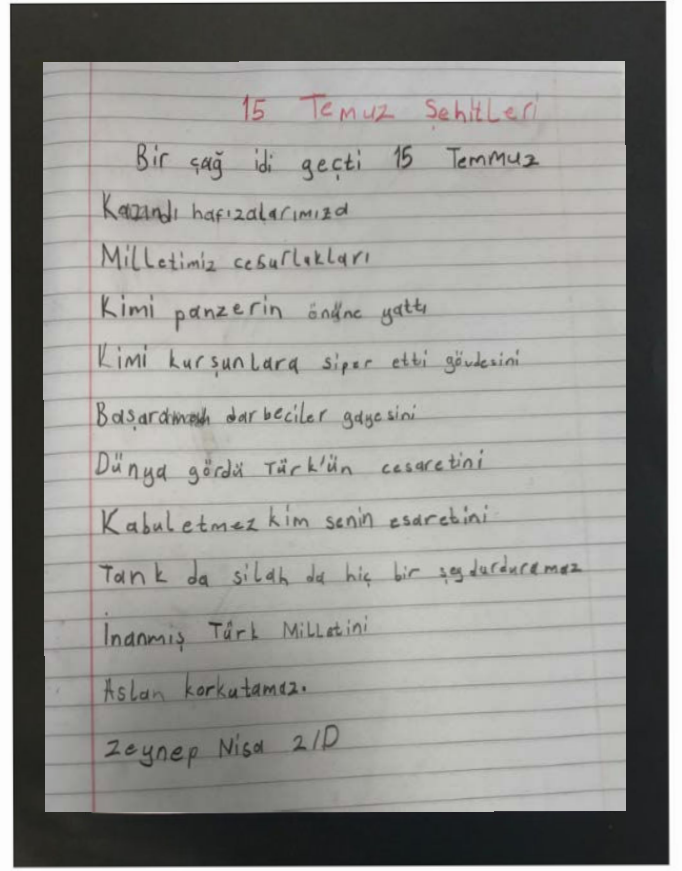 15 Temuz Şehitleri
Bir çağ idi geçti 15 Temmuz
Kazındı hafızalarımıza
Milletimiz cesurlukları
Kimi panzerin önüne yattı
Kimi kurşunlara siper etti gövdesini
darbeciler gayesini
Dünya gördü Türk'ün cesaretini
Kabul etmez kim senin esaretini
Tank da silah da hiç bir şey durduramaz
İnanmış Türk Milletini
Aslan korkutamaz.
Zeynep Nisa 2/D